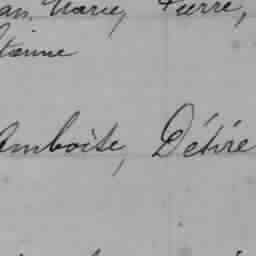 an, Marie, Pierre,
Etienne
Amboise, Désiré